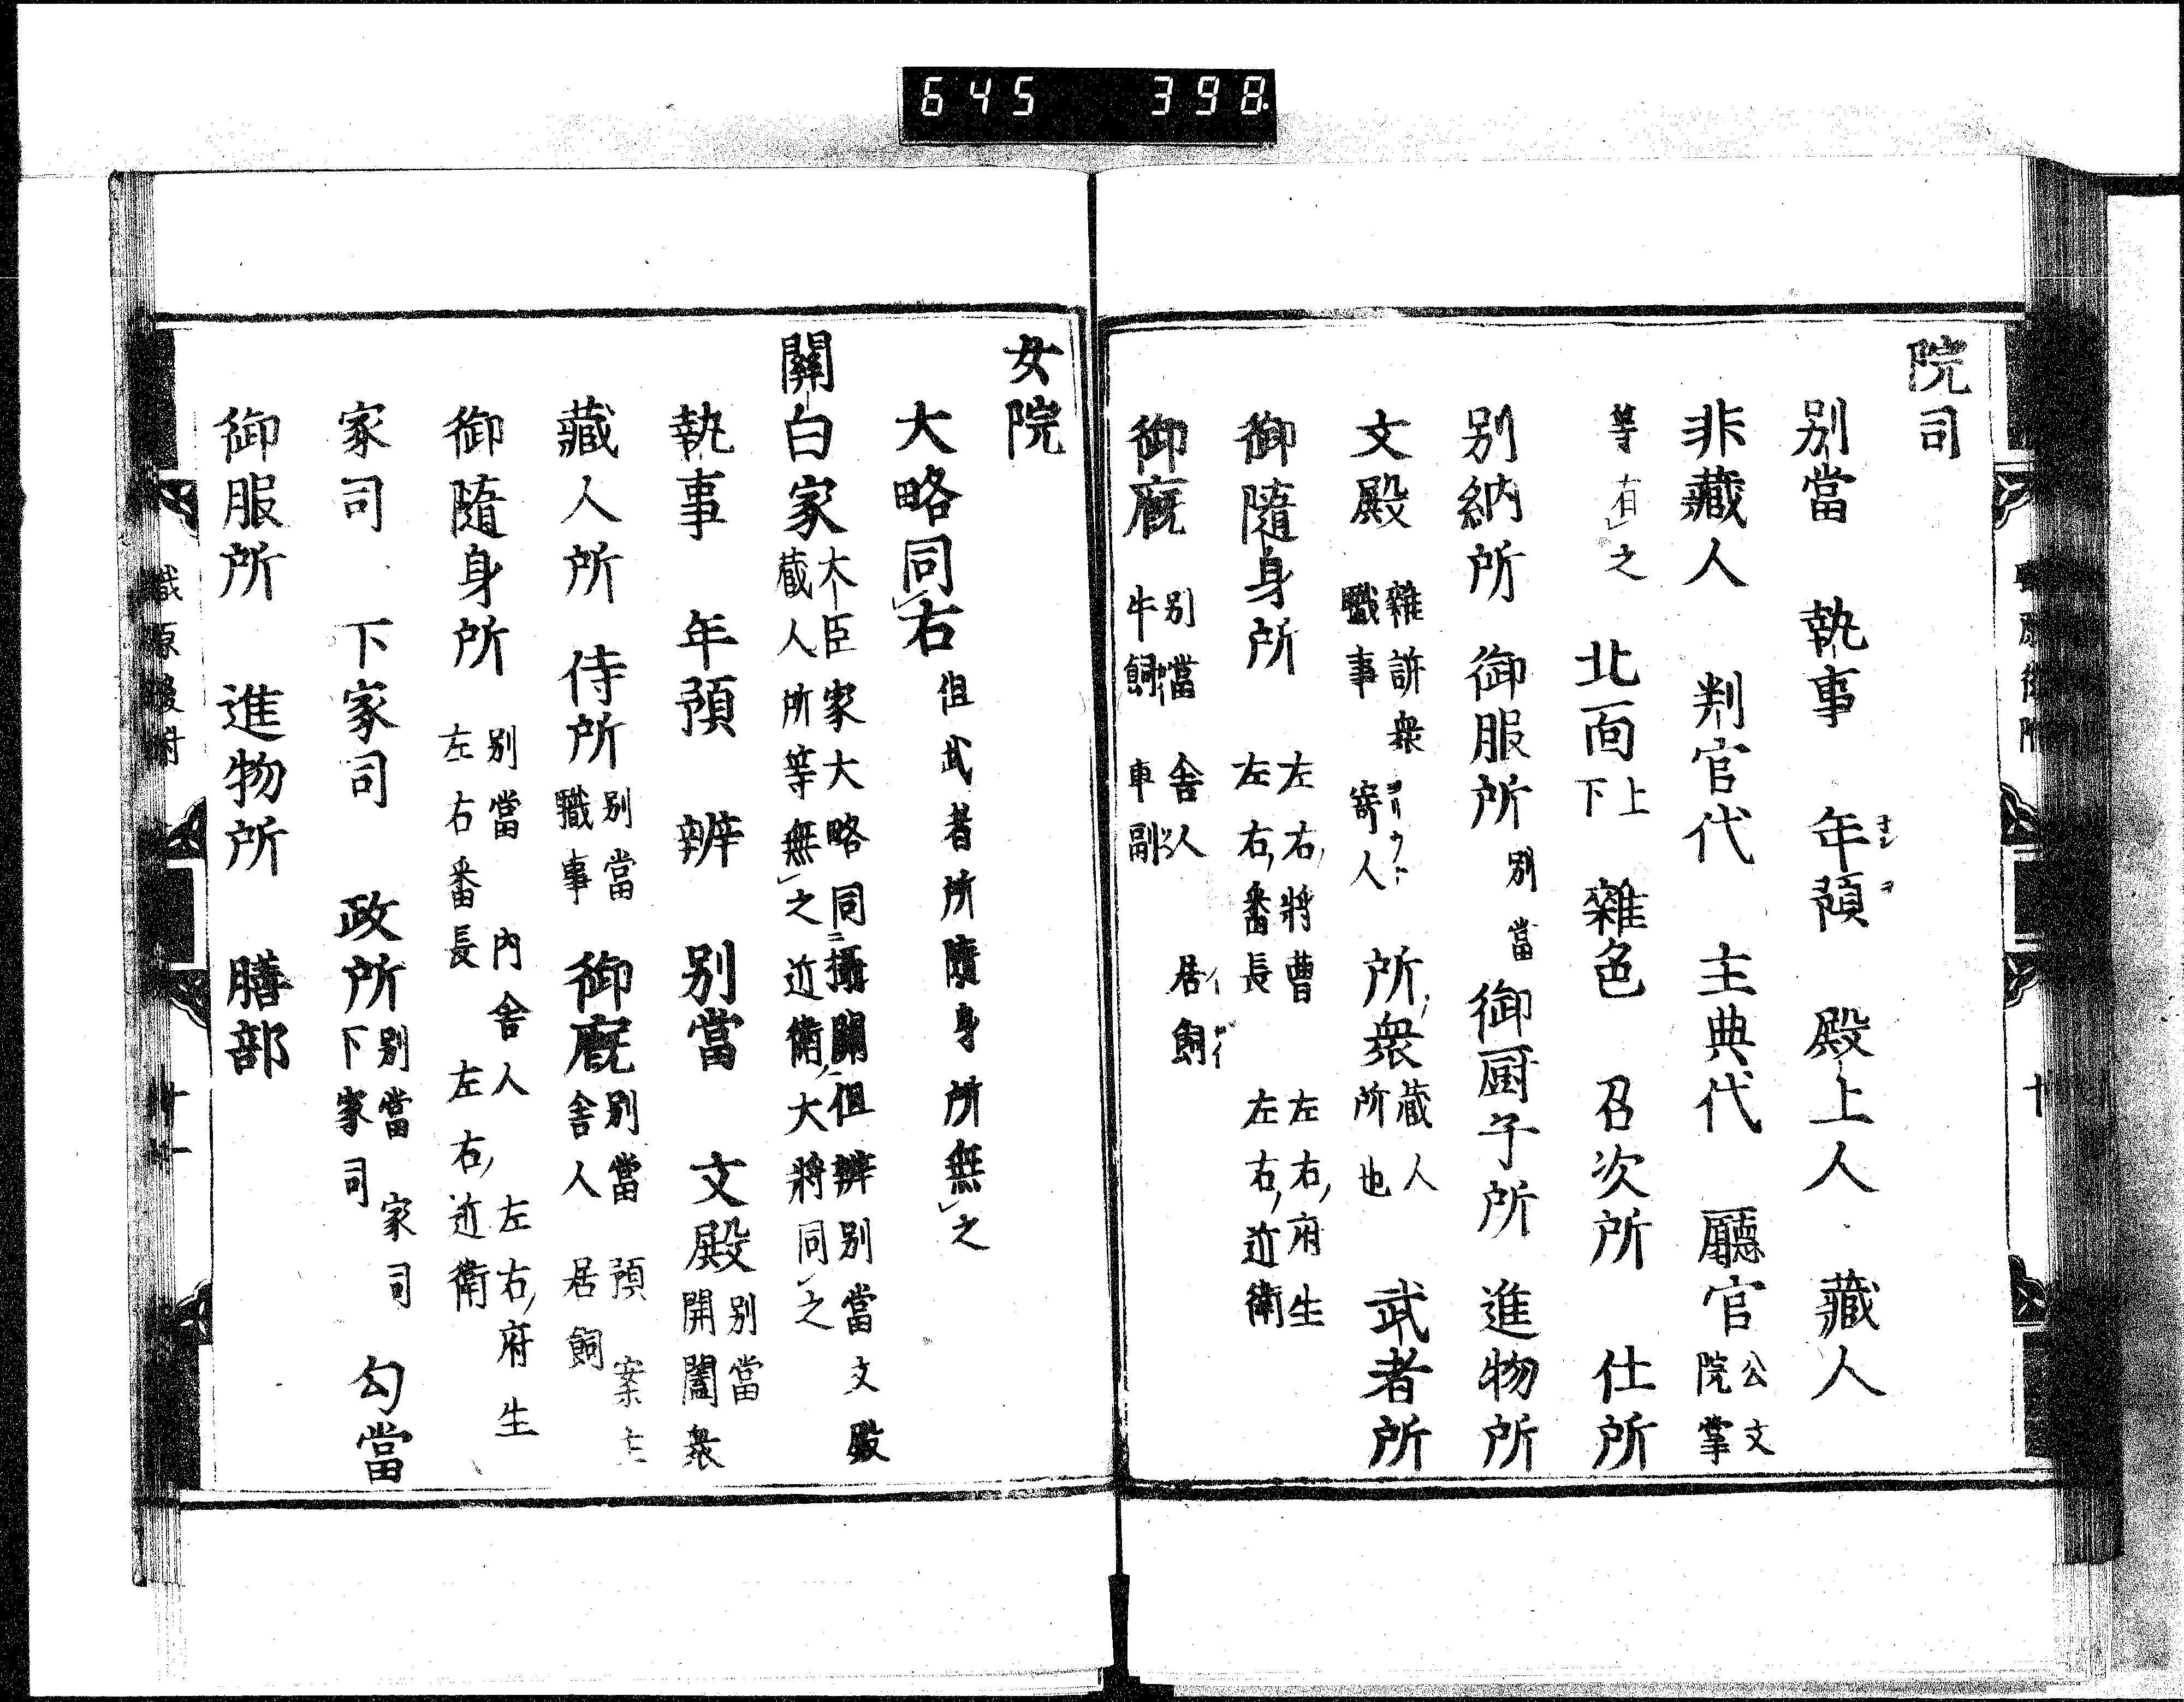 645 398
院司
別當 執事 年預 殿上人 藏人
非藏人 判官代 主典代 廳官 公文 院掌
等有之 北面 上下 雜色 召次所 仕所
別納所 御服所 別當 御厨子所 進物所
文殿 雜訴衆 職事 寄人 所衆 藏人所也 武者所
御隨身所 左右將曹 左右番長 左右府生 左右近衛
御廐 別當 舎人 居飼 牛飼 車副
女院
大略同右 但武者所隨身所無之
關白家 大臣家大略同攝關但辨別當文殿 藏人所等無之近衛大將同之
執事 年預 辨 別當 文殿 別當 開闔 衆
藏人所 侍所 別當 職事 御廐 別當 預 案主 舎人 居飼
御隨身所 別當 内舎人 左右府生 左右番長 左右近衛
家司 下家司 政所 別當 家司 下家司 勾當
御服所 進物所 膳部
職原後附 十一